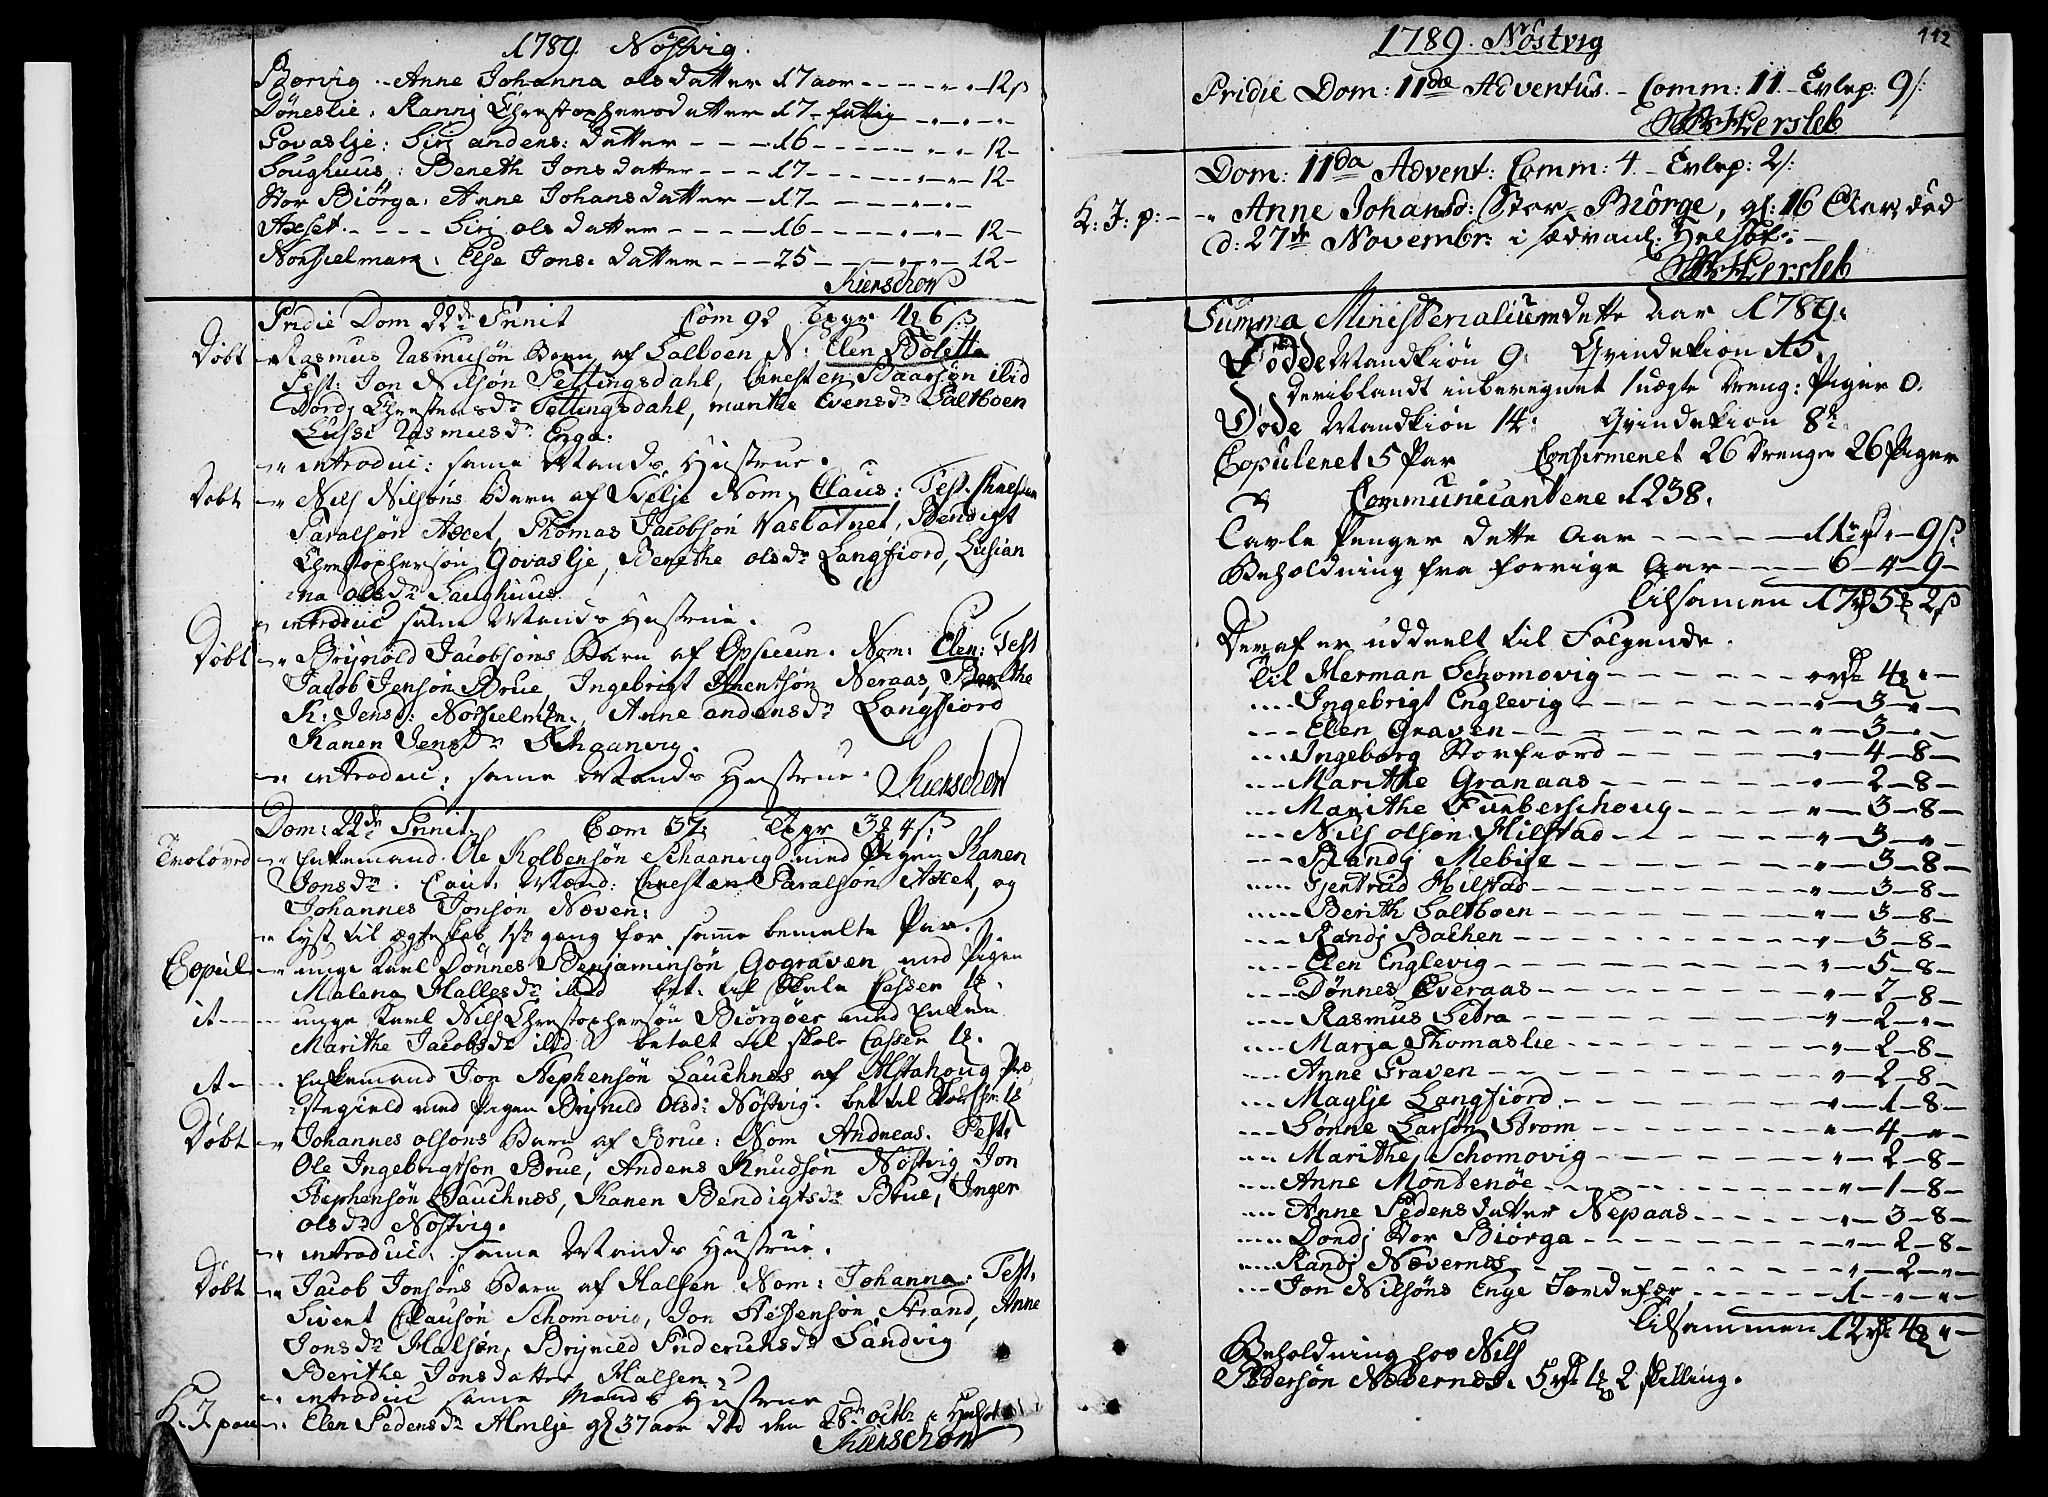 1789. Nöstvig.
Borvig. Anne Johanna olsdatter 17 aar - - - - - 12 ß
Döneslie: Ranni Christophersdatter 17 - fattig - - -
Govaslje: Siri anders: datter - - - 16 - - - - 12 -
Soughuus: Bereth Jonsdatter - - - 17 - - - - 12 -
Stor Biörga: Anne Johansdatter - 17 - - - -
Axset - - - - Siri ols datter - - - - 16 - - - - 12 -
Norhielmark: Else Jons: datter - - - 25 - - - - 12 -
Kierschow
Pridie Dom 22de Trinit Com 92 Expr 6 ß
Døbt - Rasmus Rasmusøn Barn af Saltboen N: Elen Bolette
Test: Jon Nilsøn Tettingsdahl, Christen Baarsøn ibid
Dordj Christensdr Tettingsdahl, marithe Evensdr Saltboen
Lussi Rasmusdr Enga.
- introduc: same Mands Hustrue.
Døbt - Nils Nilsøns Barn af Nom. Claus: Test. Christen
Paralsøn Axset, Thomas Jacobsøn Vasbatnet, Bendigt
Christophersøn Govaslje, Berethe olsdr Langfiord, Lusian
na olsdr Soughuus
- introduc same Mands Hustrue.
Døbt - Brynold Jacobsøns Barn af Opsuun. Nom: Elen: Test
Jacob Jensøn Brue, Ingebrigt Arentsøn Neraas, Berithe
K: Jensd: Norhielmen, Anne andersdr Langfiord
Karen Jensdr Schaanvig.
- introduc: same Mands Hustrue. Kierschow
Dom: 22de Trinit. Com 37. Expr 3 4 ß
Troloved - Enkemand Ole Kolbensøn Schaanvig med Pigen Karen
Jonsdr. Caut. Mænd: Christen Paralsøn Axset, og
Johannes Jonsøn Næven:
- lyst til ægteskab 1ste gang for samme bemelte Par.
Copul - unge Karl Dønnes Benjaminsøn Gograven med Pigen
Malena Hallesdr ibid bet: til Skole Cassen 1
it - - unge Karl Nils Christophersøn Biörgöer med Enken
Marithe Jacobsdr ibid betalt til skole Cassen 1
it - - Enkemand Jon Stephensøn Lauchnes af Alstahoug Præ
stegield med Pigen Brynild Olsd: Nöstvig. bet til Skole
Døbt - Johannes olsøns Barn af Brue: Nom Andreas. Test:
Ole Ingebrigtsøn Brue, Anders Knudsøn Nöstvig Jon
Stephensøn Lauchnes, Karen Bendigtsdr Brue, Inger
olsdr Nöstvig.
- introduc. same Mands Hustrue.
Døbt - Jacob Jonsøns Barn af Halsen Nom: Johanna: Test.
Sivert Clausøn Schomovig, Jon Strand, Anne
Jonsdr Halsen, Brynild Friderichsdr Sandvig
Berithe Jonsdatter Halsen
- introduc same Mands Hustrue
K. J. paa - Elen Pedersdr Almlje gl 37 aar død den 28de octbr
Kierschow
1789. Nöstvig
112
Pridie Dom: IIdæ Adventus. - Comm: 11. - Exlep: 9 ß:
Hersleb
Dom: IIda Advent: Comm: 4. - Exlep: 2 ß:
K: J: p: - - Anne Johansd: Stor-Biörge, gl: 16 Aar, død
d: 27de Novembr: i sædvanl:
Hersleb
Summa Ministerialium dette Aar 1789:
Fødde Mandkiön 9: Qvindekiön 15.
Deriblandt inberegnet 1 uægte Dreng: Piger 0.
Døde Mandkiön 14: Qvindekion 8te
Copuleret 5 Par Confirmeret 26 Drenge 26 Piger
Communicantene 1238.
Tavle Penger dette Aar - - - - - 11 rdr - 9 ß
Beholdning fra forrige Aar - - - - 6 - 4 - 9 -
tilsamen 17 rd 5 2 ß
Der af er uddeelt til Følgende.
Til Herman Schomovig - - - - - - 4 -
- - - Ingebrigt Englevig - - - - - - 3 -
- - - Elen Graven - - - - - - 3 -
- - - Ingeborg Storfiord - - - - - 4 - 8 -
- - - Marithe Granaas - - - - - 2 - 8 -
- - - Marithe Funberschoug - - - - - 3 - 8 -
- - - Nils olsøn Hilstad - - - - - 3 -
- - - Randj Mebise - - - - - 3 - 8 -
- - - Gjertrud Hilstad - - - - - 3 - 8 -
- - - Berith Saltboen - - - - - 3 - 8 -
- - - Randj Bachen - - - - - 3 - 8 -
- - - Elen Englevig - - - - - 5 - 8 -
- - - Dønnes Everaas - - - - - 2 - 8 -
- - - Rasmus Setra - - - - - 2 -
- - - Marja Thomaslie - - - - - 2 - 8 -
- - - Anne Graven - - - - - 2 - 8 -
- - - Maylje Langfiord - - - - - 1 - 8 -
- - - Sønne Larsøn Strøm - - - - - 4 -
- - - Marithe Schomovig - - - - - 2 - 8 -
- - - Anne Montenöe - - - - - 1 - 8 -
- - - Anne Pedersdatter Nepaas - - - - 3 - 8 -
- - - Dordj Stor Biörga - - - - - 2 - 8 -
- - - Randj Nævernes - - - - - 2 -
- - - Jon Nilsøns Enge Jordefær - - - - 1 -
tilsammen 12 rdr 4
Beholdning hos Nils
Pedersøn Næbernes. 5 rdr 1 2 skilling.